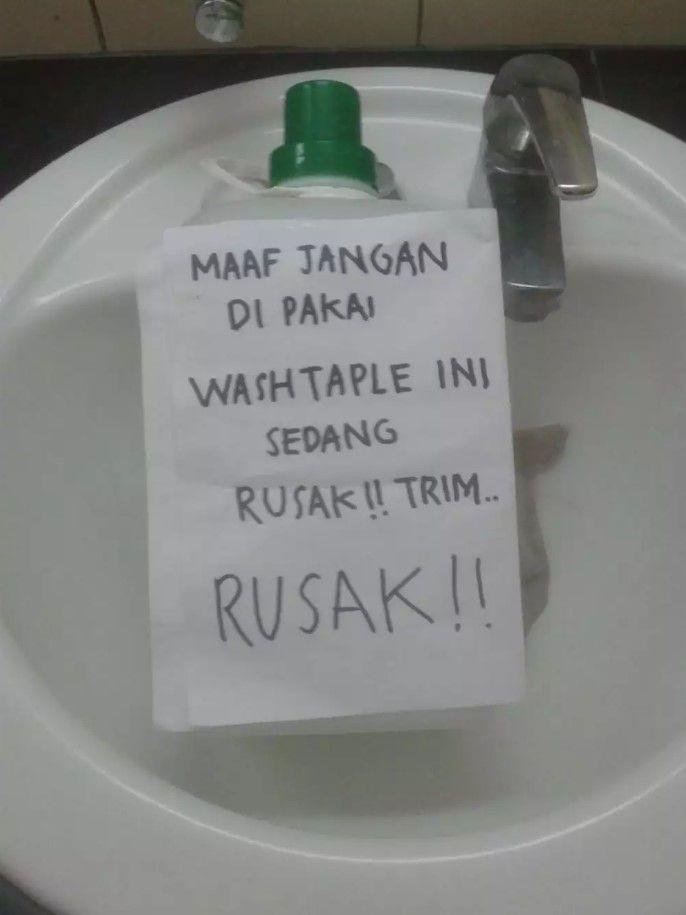 MAAF JANGAN
DI PAKAI
WASHTAPLE INI
SEDANG
RUSAK!! TRIM..
RUSAK!!